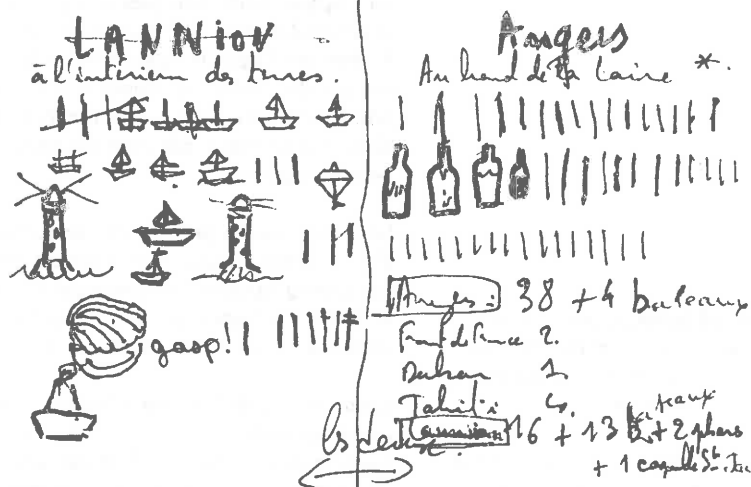 LANNION
à l'intérieur des terres.
gasp!
Angers
Au bord de la Loire *.
Angers : 38 + 4 bateaux
Fort de France 2.
Durban 1.
Tahiti 4.
Lannion 16 + 13 bateaux + 2 phares
+ 1 coquille St. Jac
les deux.